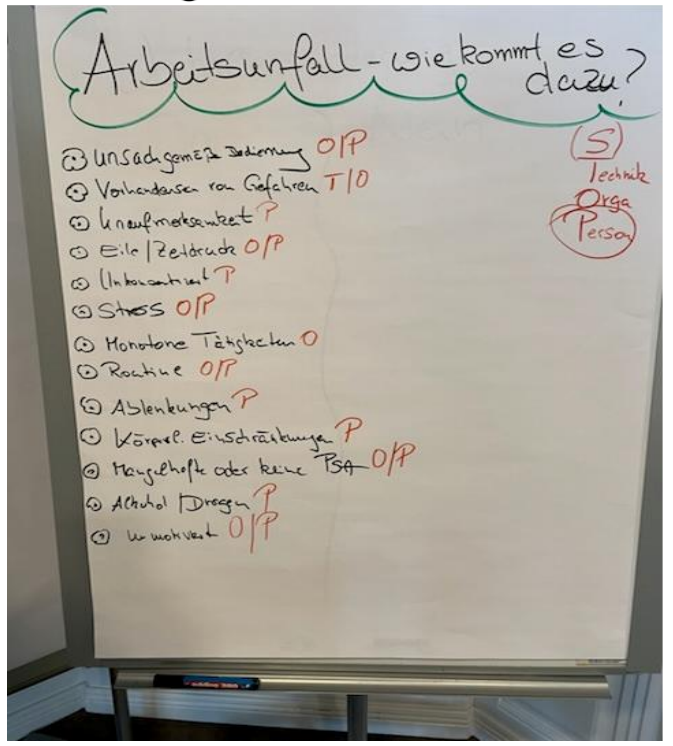 Arbeitsunfall - wie kommt es
dazu?
unsachgemäße Bedienung O/P
Vorhandensein von Gefahren T/O
Unaufmerksamkeit P
Eile/Zeitdruck O/P
Unkonzentriert P
Stress O/P
Monotone Tätigkeiten O
Routine O/P
Ablenkungen P
Körperl. Einschränkungen P
Mangelhafte oder keine PSA O/P
Alkohol/Drogen P
Unmotiviert O/P
(S)
Technik
Orga
Person